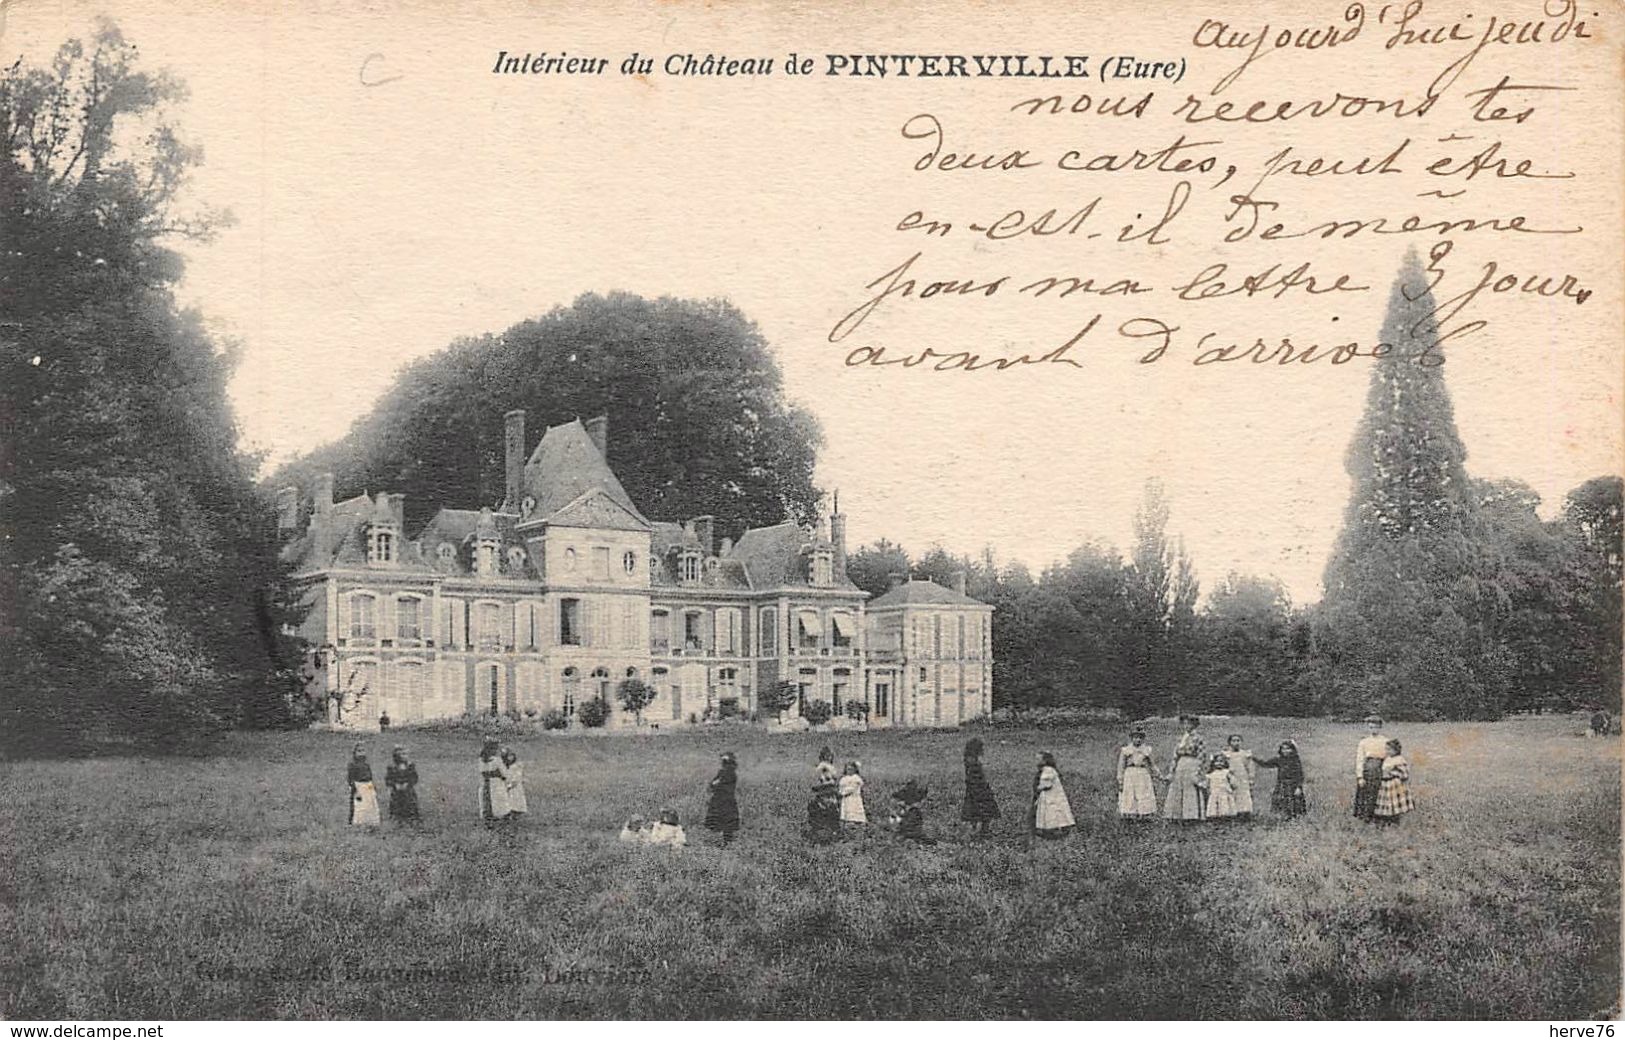 Intérieur du Château de PINTERVILLE (Eure)
C
aujourd'hui jeudi
nous recevons tes
deux cartes, peut être
en-est-il de même
pour ma lettre 3 jours
avant d'arriver
édit. Louviers
www.delcampe.net
herve76